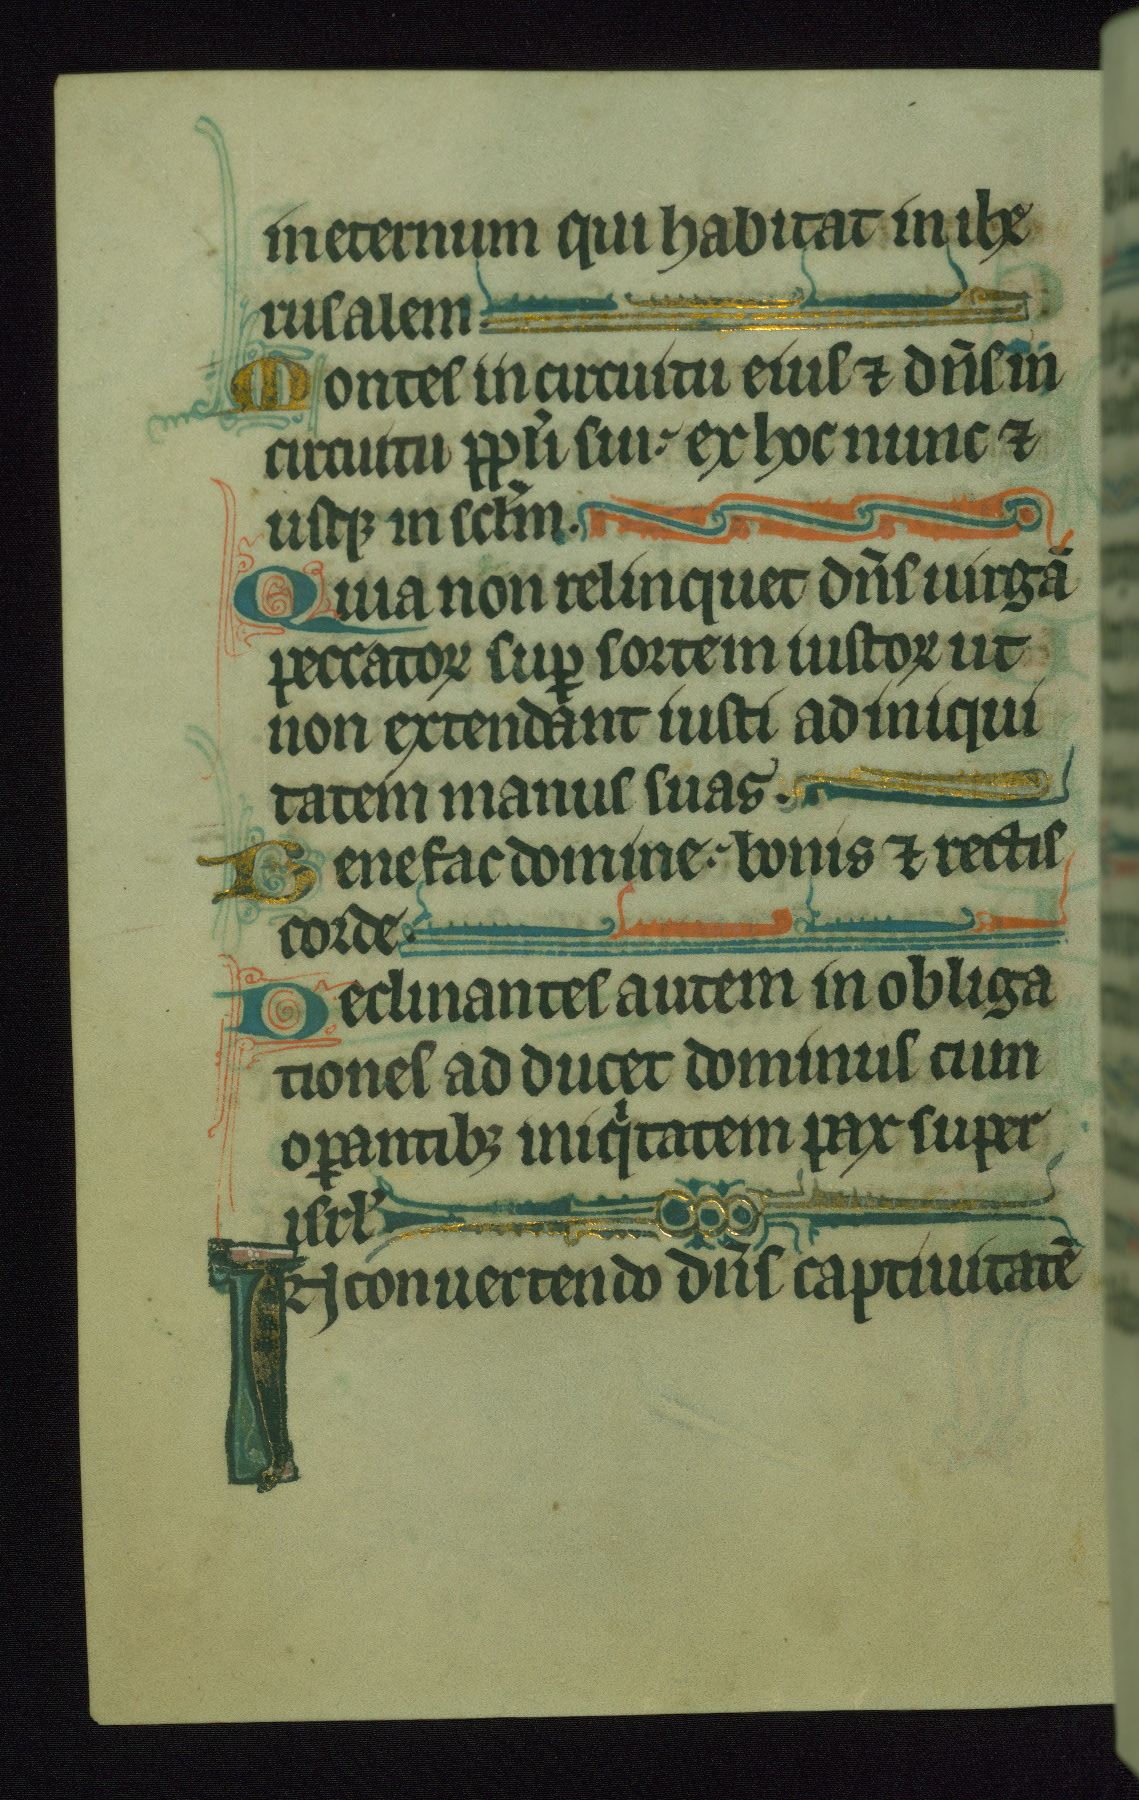 in eternum qui habitat in ihe
rusalem
Montes in circuitu eius ⁊ dñs in
circuitu ppl̃i sui: ex hoc nunc ⁊
usqꝫ in sclm̃.
Quia non relinquet dñs uirgā
peccatoꝝ suꝑ sortem iustoꝝ ut
non extendant iusti ad iniqui
tatem manus suas.
Benefac domine: bonis ⁊ rectis
corde.
Declinantes autem in obliga
tiones adducet dominus cum
oꝑantibꝫ iniqͥtatem pax super
isrl̃
IN conuertendo dñs captiuitatē